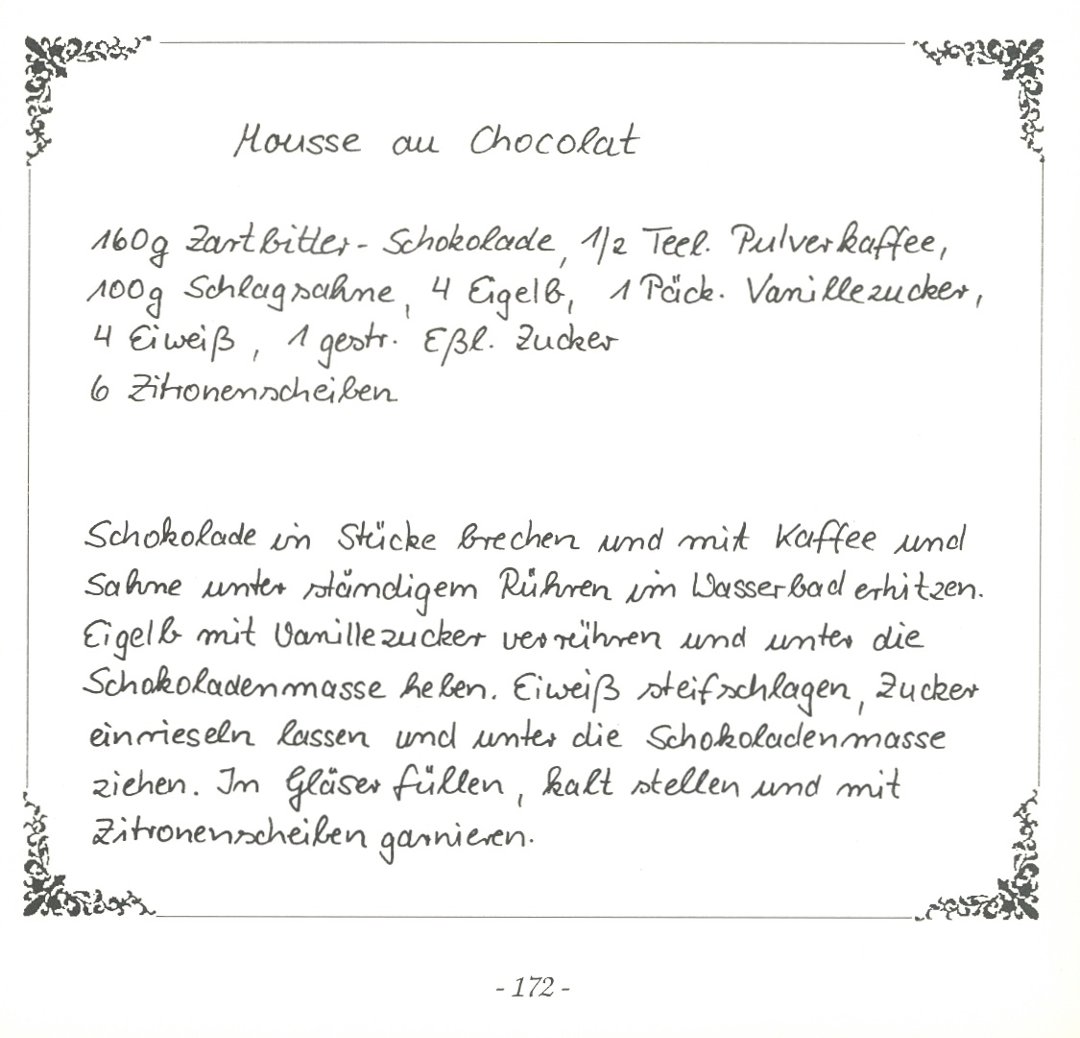 Mousse au Chocolat
160g Zartbitter-Schokolade, 1/2 Teel. Pulverkaffee,
100g Schlagsahne, 4 Eigelb, 1 Päck. Vanillezucker,
4 Eiweiß, 1 gestr. Eßl. Zucker
6 Zitronenscheiben
Schokolade in Stücke brechen und mit Kaffee und
Sahne unter ständigem Rühren im Wasserbad erhitzen.
Eigelb mit Vanillezucker verrühren und unter die
Schokoladenmasse heben. Eiweiß steifschlagen, Zucker
einrieseln lassen und unter die Schokoladenmasse
ziehen. In Gläser füllen, kalt stellen und mit
Zitronenscheiben garnieren.
- 172 -